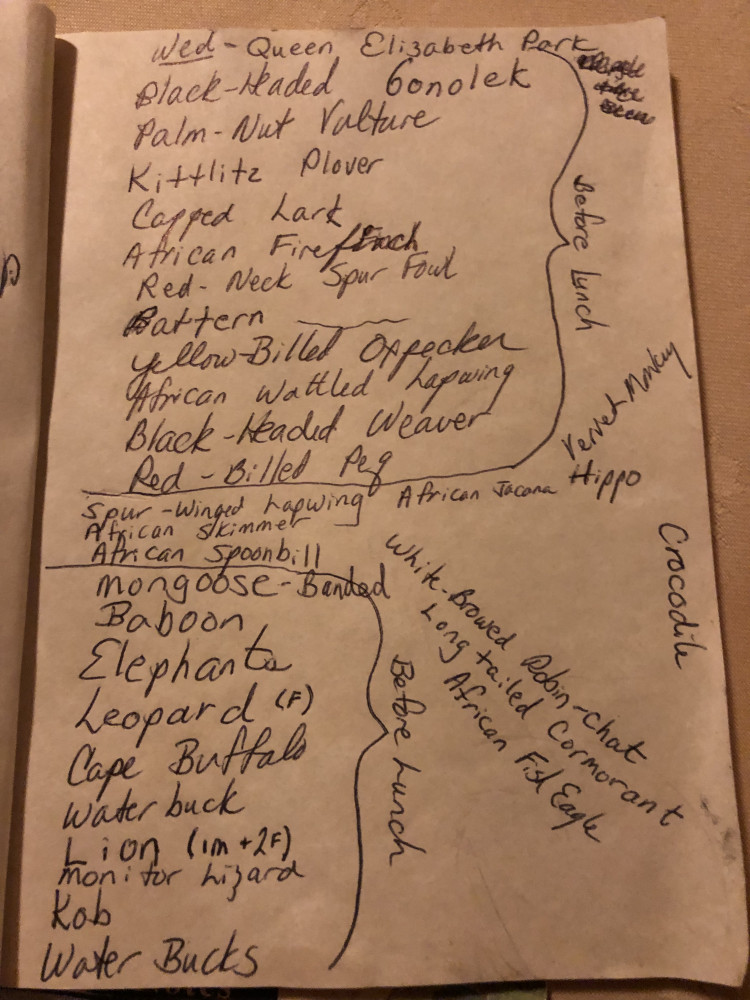 Wed - Queen Elizabeth Park
Black-Headed Gonolek
Palm-Nut Vulture
Kittlitz Plover
Capped Lark
African Firefinch
Red-Neck Spur Fowl
Battern
Yellow-Billed Oxpecker
African Wattled Lapwing
Black-Headed Weaver
Red-Billed Peq
Before Lunch
Vervet Monkey
Hippo
Spur-Winged Lapwing African Jacana
African Skimmer
African Spoonbill
Crocodile
White-Browed Robin-Chat
Long tailed Cormorant
African Fish Eagle
Mongoose-Banded
Baboon
Elephants
Leopard (F)
Cape Buffalo
Waterbuck
Lion (1m + 2F)
Monitor Lizard
Kob
Water Bucks
Before Lunch